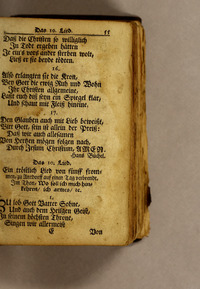 Das 10. Lied. 55
Daß die Christen so williglich
In Tode ergeben hätten
Je eins vors ander sterben wolt,
Ließ er sie beyde tödten.
16.
Also erlangten sie die Kron,
Bey Gott die ewig Ruh und Wohn
Ihr Christen allgemeine,
Lant euch diß seyn ein Spiegel klar,
Und schaut mit Fleiß hineine.
17.
Den Glauben auch mit Lieb beweist,
Hier Gott, sein ist allein der Preiß:
Daß wir auch allesamen
Von Herzen mögen folgen nach,
Durch Jesum Christum, AMEN.
Hans Büchel.
Das 10. Lied.
Ein tröstlich Lied von fünff
zu Antdorff auf einen Tag verbrennt,
Im Thon, Wo soll ich mich hin
kehren, ich armes, rc.
1.
DU solt Gott Vatter Sohne,
Und auch dem Heiligen Geist,
In seinem höchsten Throne,
Singen wir allermeist
E Von